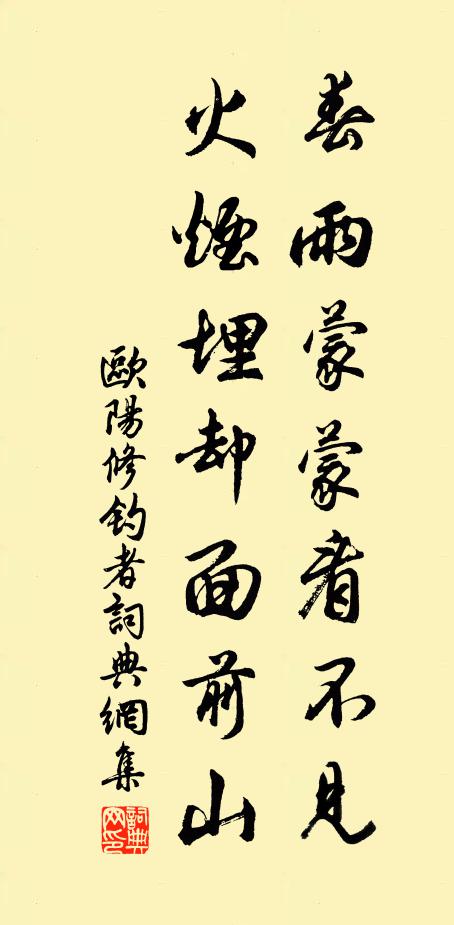 春雨蒙蒙看不見
火煙埋却面前山
歐陽修釣者詞典網集
詞典网印